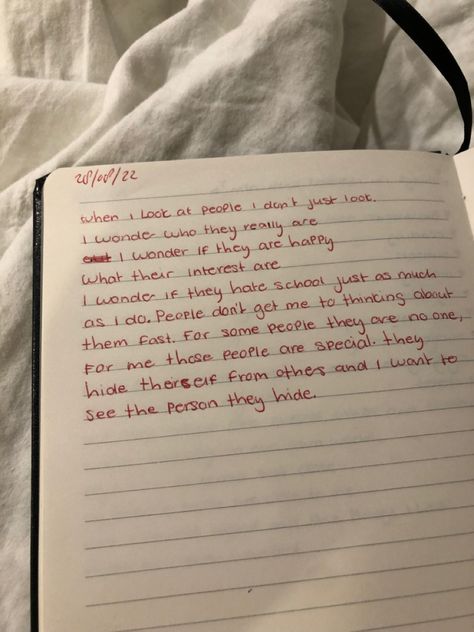 28/08/22
when I look at people I don't just look.
I wonder who they really are
I wonder if they are happy
what their interest are
I wonder if they hate school just as much
as I do. People don't get me to thinking about
them fast. For some people they are no one,
For me those people are special. they
hide therself from others and I want to
see the person they hide.